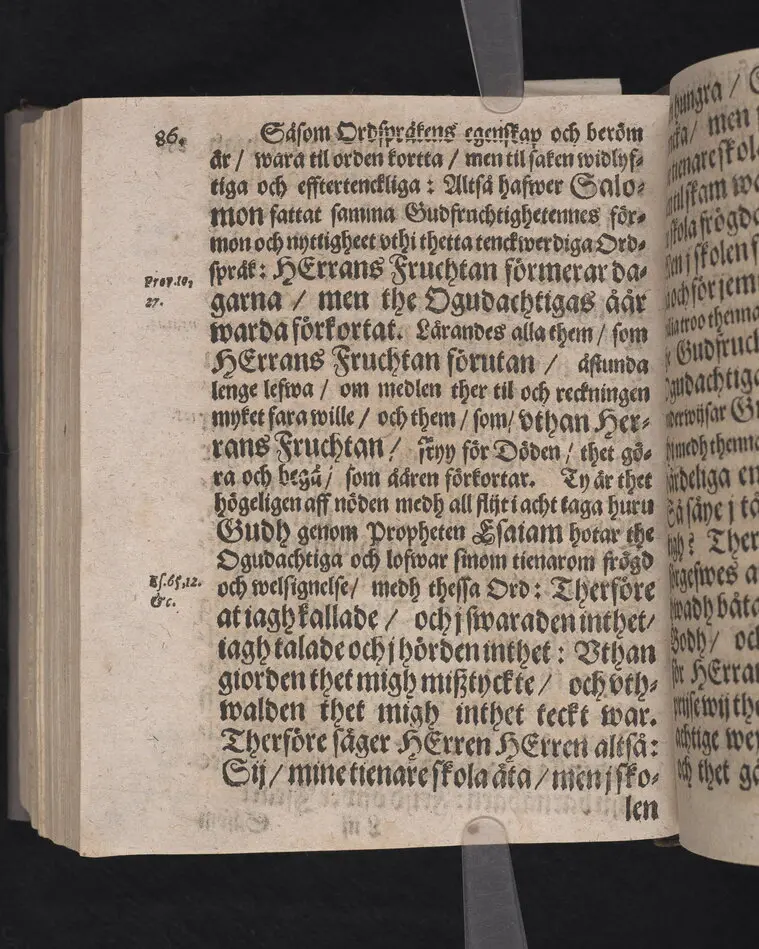 86.
Såsom Ordspråkens egenskap och beröm
är / wara til orden kortta / men til saken widlyf-
tiga och efftertenckliga : Altså hafwer Salo-
mon fattat samma Gudfruchtighetennes för-
mon och nyttigheet vthi thetta tenckwerdiga Ord-
språk : HErrans Fruchtan förmerar da-
Prov. 10,
27.
garna / men the Ogudachtigas åår
warda förkortat. Lärandes alla them / som
HErrans Fruchtan förutan / åstunda
lenge lefwa / om medlen ther til och reckningen
myket fara wille / och them / som / vthan Her-
rans Fruchtan / skyy för Döden / thet gö-
ra och begå / som ååren förkortar. Ty är thet
högeligen aff nöden medh all flijt i acht taga huru
Gudh genom Propheten Esaiam hotar the
Ogudachtiga och lofwar sinom tienarom frögd
Es. 65, 12.
&c.
och welsignelse / medh thessa Ord : Therföre
at iagh kallade / och j swaraden inthet /
iagh talade och j hörden inthet : Vthan
giorden thet migh mißtyckte / och vth-
walden thet migh inthet teckt war.
Therföre säger HErren HErren altså :
Sij / mine tienare skola äta / men j sko-
len
hungra / 
men
tienare skol
til skam
skola frögd
men j skolen
och för jem
Gudfruch
gudachtig
medh thenn
Ther
HErra
och thet